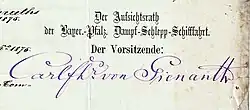 Der Aufsichtsrath
der Bayer.-Pfälz. Dampf-Schlepp-Schifffahrt.
1875.
Der Vorsitzende:
Carl Frhr von Gienanth